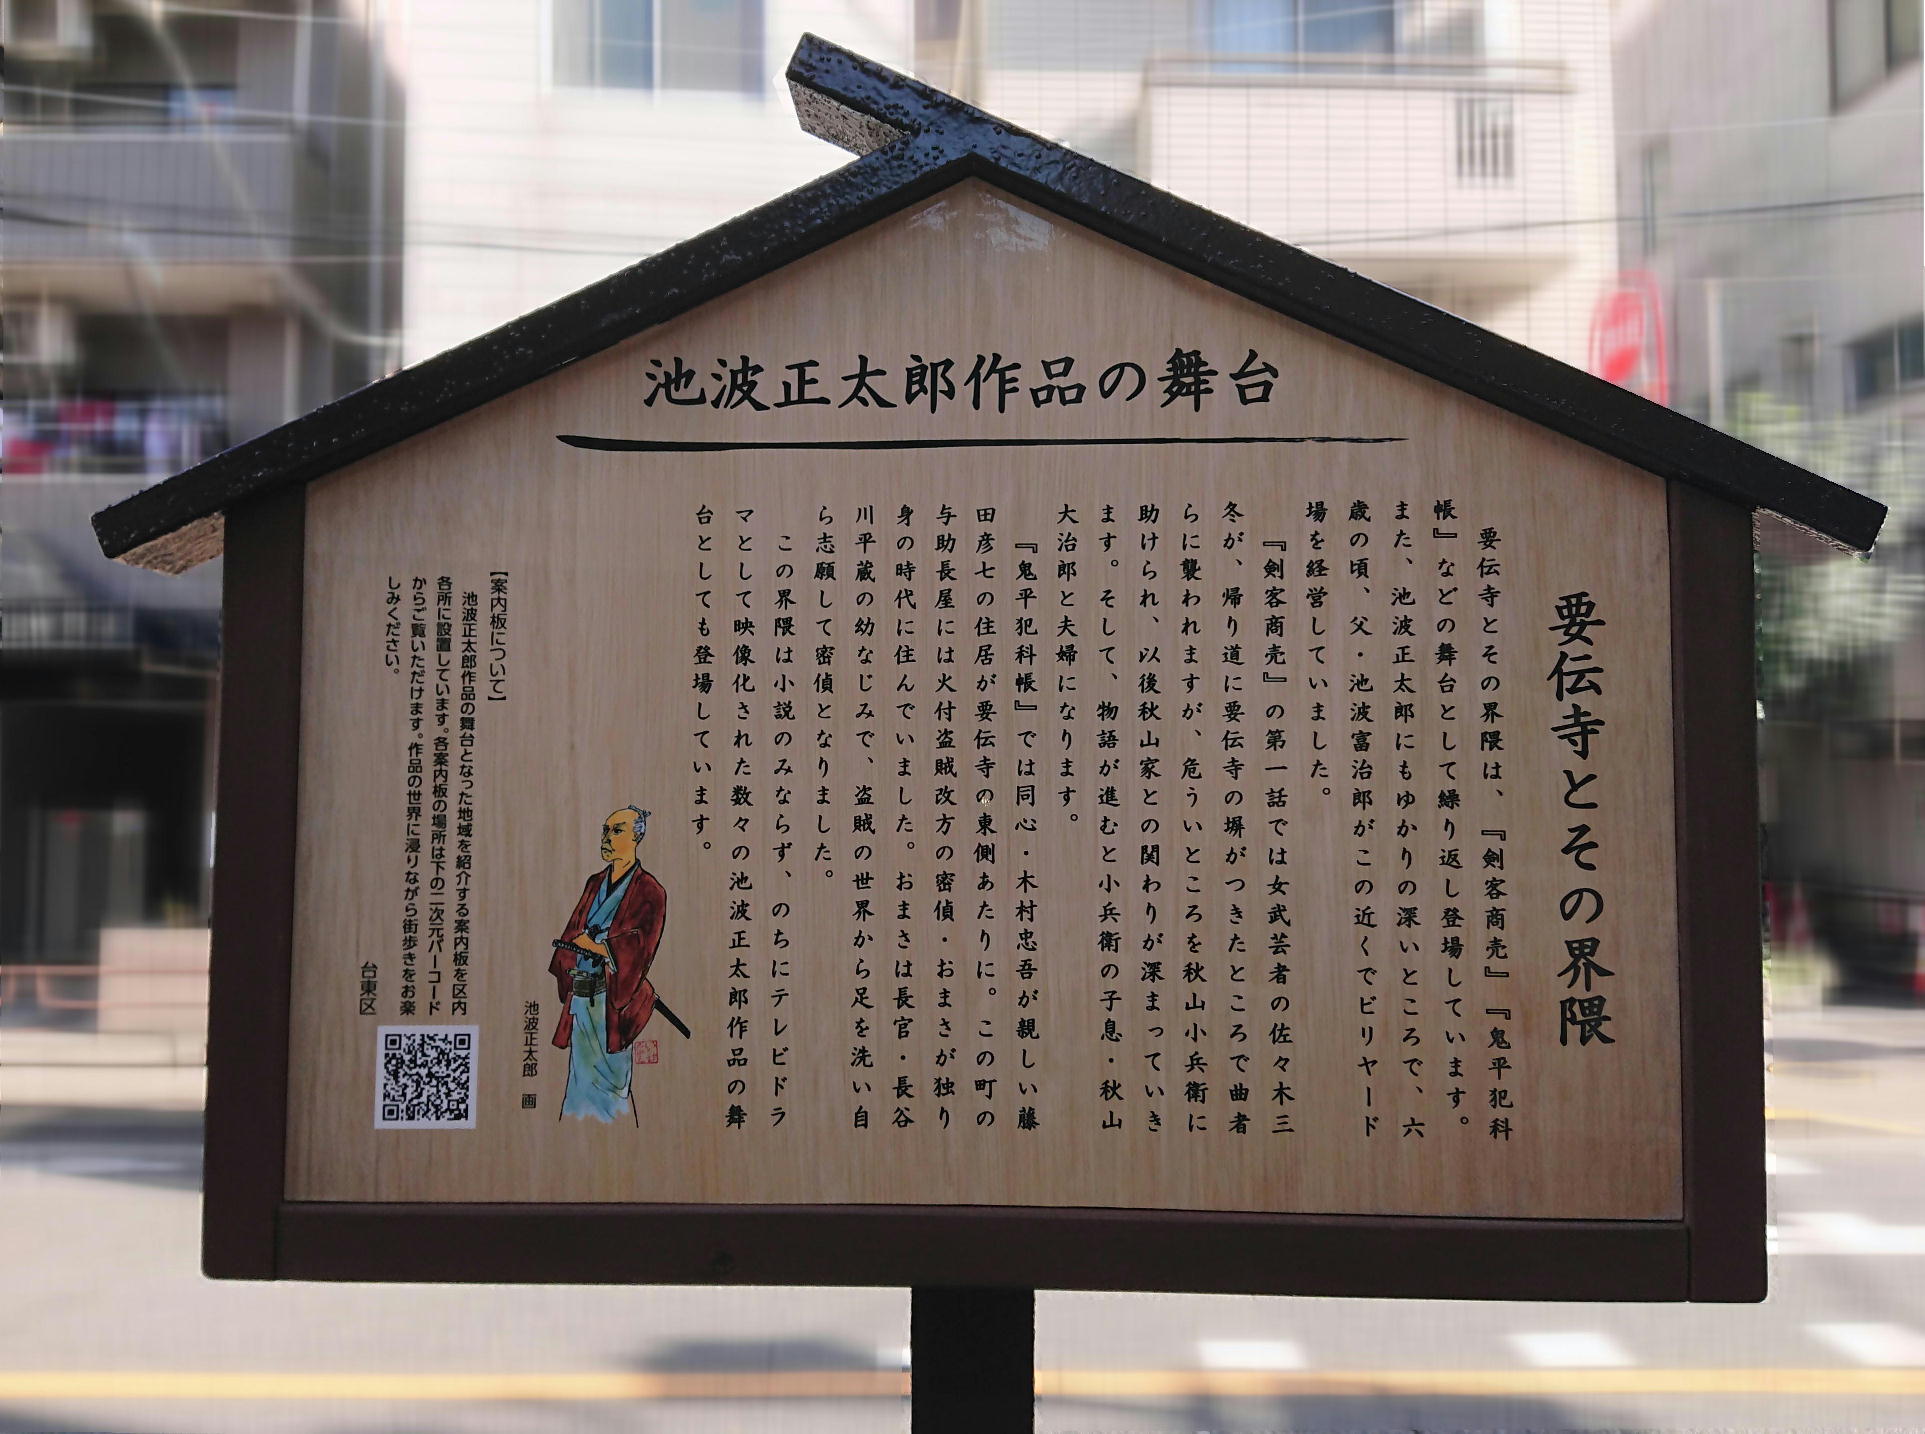 池波正太郎作品の舞台
要伝寺とその界隈
要伝寺とその界隈は、『剣客商売』『鬼平犯科
帳』などの舞台として繰り返し登場しています。
また、池波正太郎にもゆかりの深いところで、六
歳の頃、父・池波富治郎がこの近くでビリヤード
場を経営していました。
『剣客商売』の第一話では女武芸者の佐々木三
冬が、帰り道に要伝寺の塀がつきたところで曲者
らに襲われますが、危ういところを秋山小兵衛に
助けられ、以後秋山家との関わりが深まっていき
ます。そして、物語が進むと小兵衛の子息・秋山
大治郎と夫婦になります。
『鬼平犯科帳』では同心・木村忠吾が親しい藤
田彦七の住居が要伝寺の東側あたりに。この町の
与助長屋には火付盗賊改方の密偵・おまさが独り
身の時代に住んでいました。おまさは長官・長谷
川平蔵の幼なじみで、盗賊の世界から足を洗い自
ら志願して密偵となりました。
この界隈は小説のみならず、のちにテレビドラ
マとして映像化された数々の池波正太郎作品の舞
台としても登場しています。
池波正太郎 画
【案内板について】
池波正太郎作品の舞台となった地域を紹介する案内板を区内
各所に設置しています。各案内板の場所は下の二次元バーコード
からご覧いただけます。作品の世界に浸りながら街歩きをお楽
しみください。
台東区